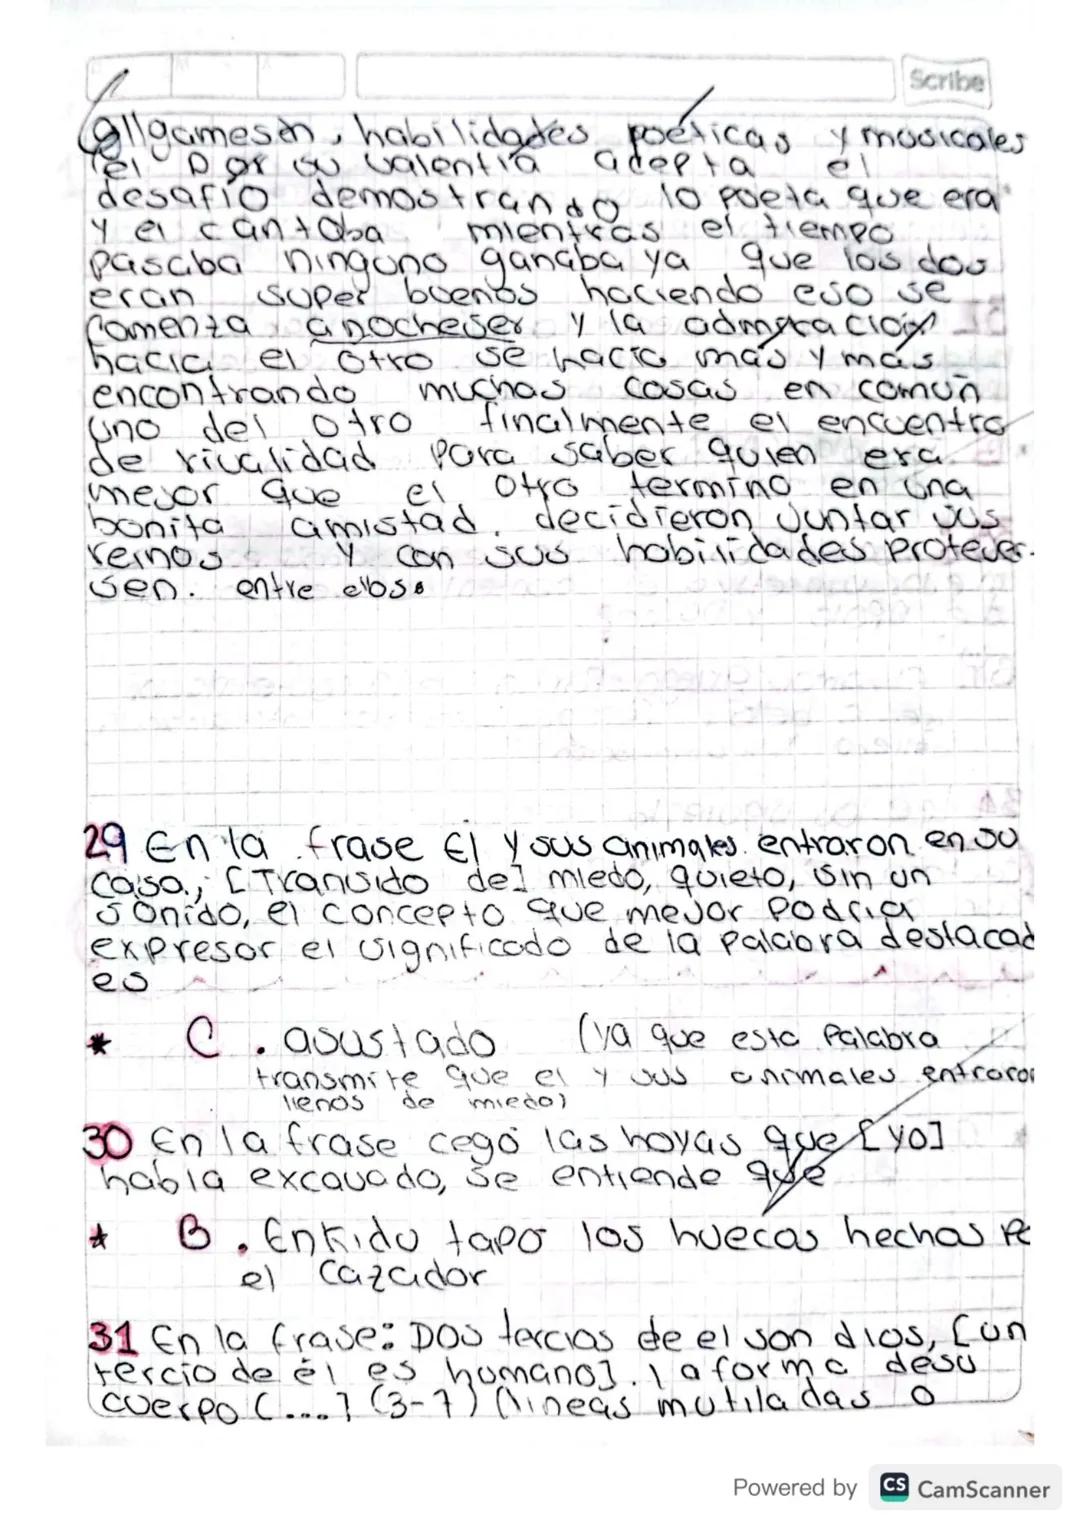 Scribe
Gilgamesh, habilidades poéticas y musicales
el por su valentia adepta el
desafio demostrando lo poeta que era
y el cantaba mientras el tiempo
pasaba ninguno ganaba ya que los dos
eran super buenos haciendo eso se
comenza anocheser y la admiracion
hacia el otro se hacia mas y mas
encontrando muchas cosas en comun
uno del otro finalmente el encuentro
de rivalidad para saber quien era
mejor que el otro termino en una
bonita amistad. decidieron juntar sus
reinos y con sus habilidades protejer.
sen. entre ellos.
29 En la frase El y sus animales entraron en su
casa, [Transido de] miedo, quieto, sin un
sonido, el concepto que mejor podria
expresar el significado de la palabra destacad
es
* C. asustado (ya que esta palabra
transmite que el y sus animales entraron
llenos de miedo)
30 En la frase cegó las hoyas que [yo]
habia excavado, se entiende que
* B. Enkidu tapo los huecos hechos po
el cazador
31 En la frase: Dos tercios de el son dios, [un
tercio de él es humano]. la forma desu
cuerpo [...] (3-7) (lineas mutiladas o
Powered by CS CamScanner